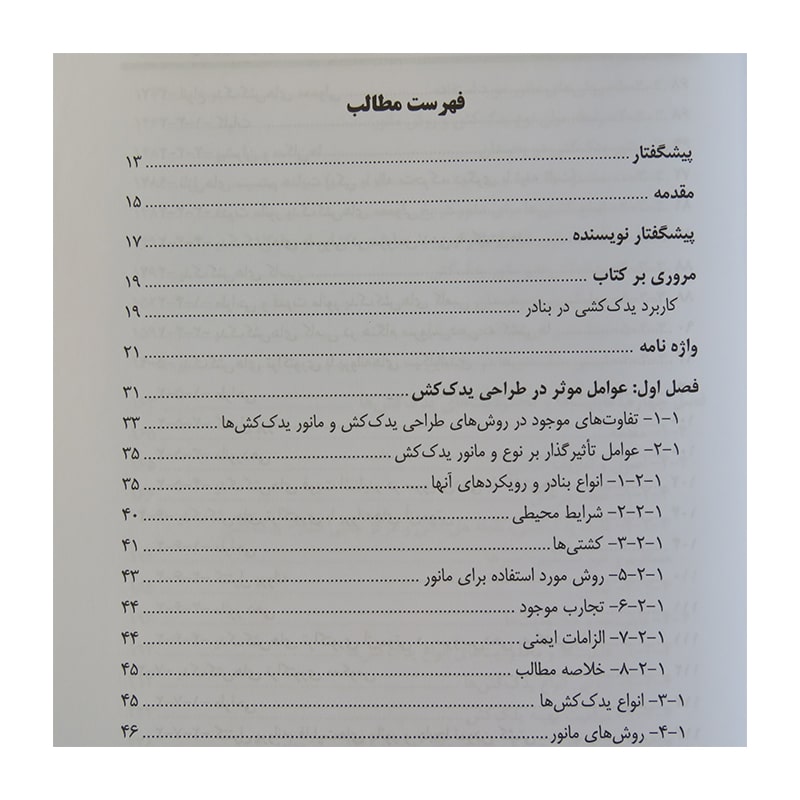 فهرست مطالب
پیشگفتار ........ ۱۳
مقدمه ........ ۱۵
پیشگفتار نویسنده ........ ۱۷
مروری بر کتاب ........ ۱۹
کاربرد یدک‌کشی در بنادر ........ ۱۹
واژه نامه ........ ۲۱
فصل اول: عوامل موثر در طراحی یدک‌کش ........ ۳۱
۱-۱- تفاوت‌های موجود در روش‌های طراحی یدک‌کش و مانور یدک‌کش‌ها ........ ۳۳
۱-۲- عوامل تأثیرگذار بر نوع و مانور یدک‌کش ........ ۳۵
۱-۲-۱- انواع بنادر و رویکردهای آنها ........ ۳۵
۱-۲-۲- شرایط محیطی ........ ۴۰
۱-۲-۳- کشتی‌ها ........ ۴۱
۱-۲-۵- روش مورد استفاده برای مانور ........ ۴۳
۱-۲-۶- تجارب موجود ........ ۴۴
۱-۲-۷- الزامات ایمنی ........ ۴۴
۱-۲-۸- خلاصه مطالب ........ ۴۵
۱-۳- انواع یدک‌کش‌ها ........ ۴۵
۱-۴- روش‌های مانور ........ ۴۶